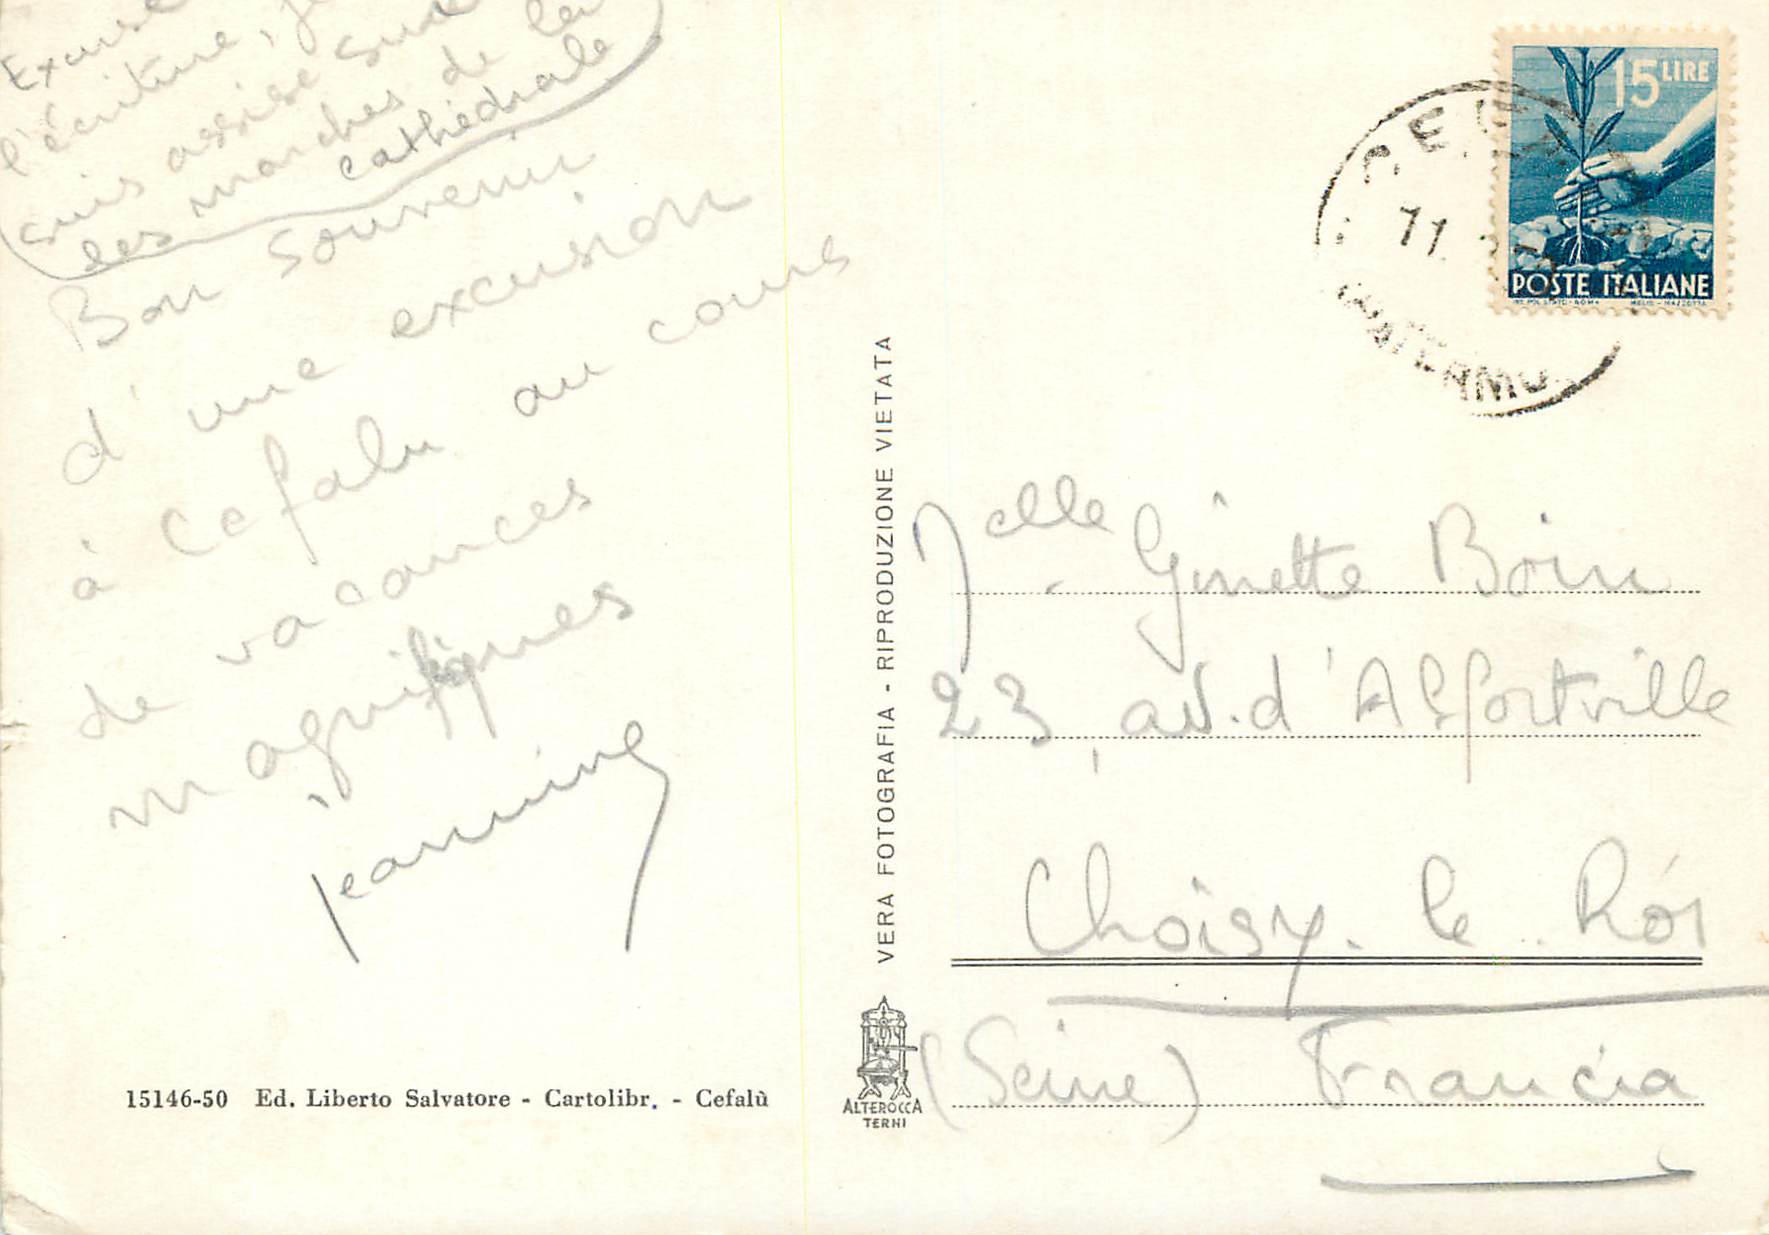 Excuse
l'écriture, je
suis assise sur
les marches de la
cathédrale
Bon souvenir
d'une excursion
à Cefalu au cours
de vacances
magnifiques
Jeannine
15146-50 Ed. Liberto Salvatore - Cartolibr. - Cefalù
VERA FOTOGRAFIA - RIPRODUZIONE VIETATA
ALTEROCCA
TERNI
15 LIRE
POSTE ITALIANE
11.
Melle Ginette Boin
23, av. d'Alfortville
Choisy-le-Roi
(Seine) Francia